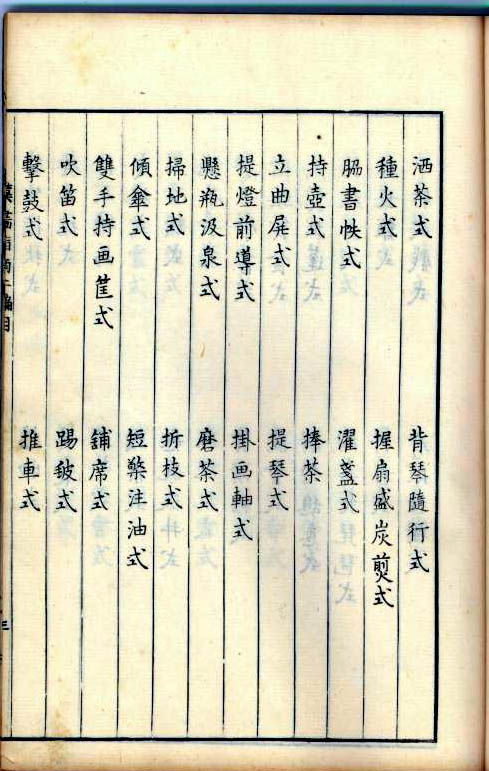 洒茶式　背琴隨行式
種火式　握扇盛炭煎式
脇書帙式　濯盞式
持壺式　捧茶
立曲屏式　提琴式
提燈前導式　掛画軸式
懸瓶汲泉式　磨茶式
掃地式　折枝式
傾傘式　短檠注油式
雙手持画筐式　鋪席式
吹笛式　踢式
擊鼓式　推車式
三